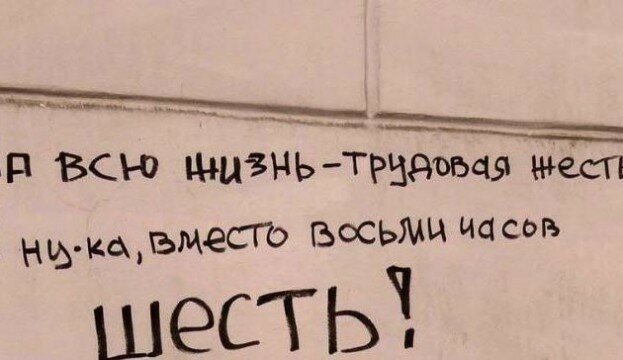 ЗА ВСЮ ЖИЗНЬ-ТРУДОВАЯ ЖЕСТЬ
НУ-КА, ВМЕСТО ВОСЬМИ ЧАСОВ
ШЕСТЬ!